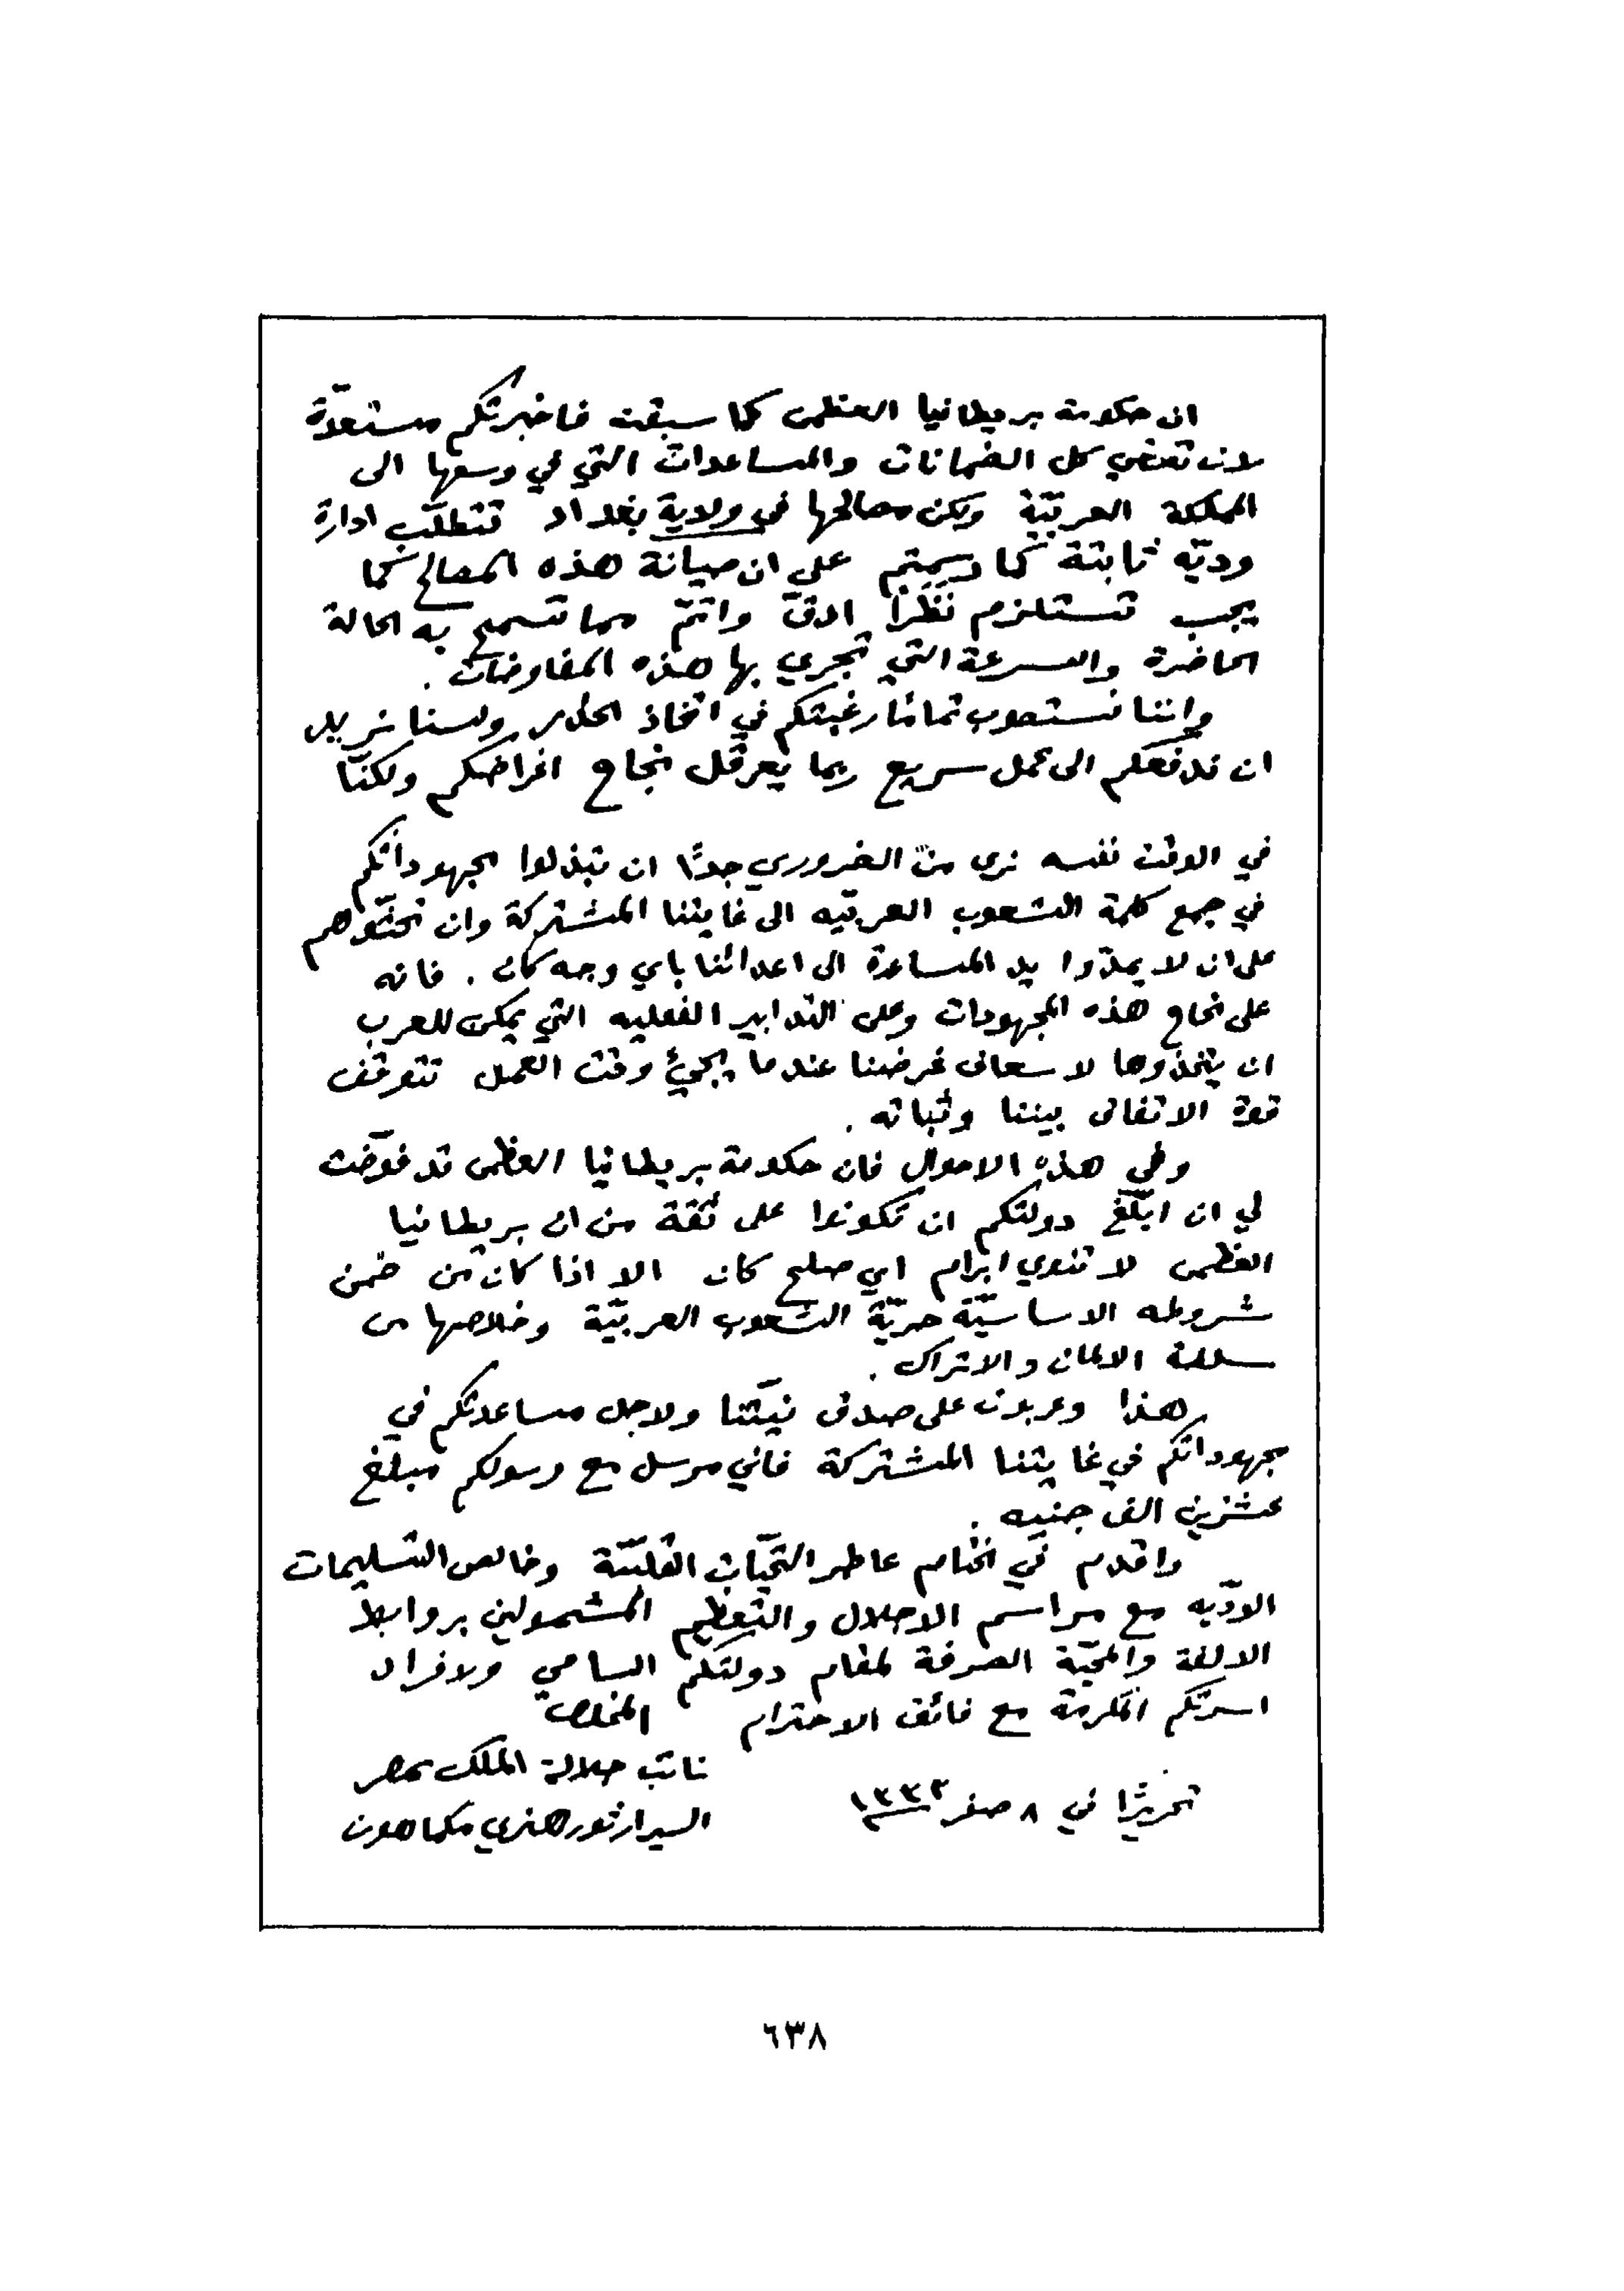 ان حكومة بريطانيا العظمى كما سبقت فاخبرتكم مستعدّة
لان تعطي كل الضمانات والمساعدات التي في وسعها الى
المملكة العربيّة ولكن مصالحها في ولاية بغداد تتطلّب ادارة
وديّه ثابتة كما رسمتم على ان صيانة هذه المصالح كما
يجب تستلزم نظرًا ادقّ واتمّ مما تسمح به الحالة
الحاضرة والسرعة التي تجري بها هذه المفاوضات .
واننا نستصوب تمامًا رغبتكم في اتخاذ الحذر ولسنا نريد
ان ندفعكم الى عمل سريع ربما يعرقل نجاح اغراضكم ولكنّا
في الوقت نفسه نرى من الضروري جدًّا ان تبذلوا مجهوداتكم
في جمع كلمة الشعوب العربيّه الى غايتنا المشتركة وان تحثّوهم
على ان لا يمدّوا يد المساعدة الى اعدائنا باي وجه كان . فانه
على نجاح هذه المجهودات وعلى التدابير الفعليه التي يمكن للعرب
ان يتخذوها لاسعاف غرضنا عندما يجئ وقت العمل تتوقف
قوة الاتفاق بيننا وثباته .
وفي هذه الاحوال فان حكومة بريطانيا العظمى قد فوّضت
لي ان ابلّغ دولتكم ان تكونوا على ثقة من ان بريطانيا
العظمى لا تنوي ابرام اي صلح كان الا اذا كان من ضمن
شروطه الاساسيّة حريّة الشعوب العربيّة وخلاصها من
سلطة الالمان والاتراك .
هذا وعربون على صدق نيّتنا ولاجل مساعدتكم في
مجهوداتكم في غايتنا المشتركة فاني مرسل مع رسولكم مبلغ
عشرين الف جنيه .
واقدم في الختام عاطر التحيّات القلبيّة وخالص التسليمات
الودّيه مع مراسم الاجلال والتعظيم المشمولين بروابط
الالفة والمحبّة الصرفة لمقام دولتكم السامي ولافراد
اسرتكم المكرمة مع فائق الاحترام المخلص
نائب جلالة الملك بمصر
تحريرًا في ٨ صفر ١٣٣٤
السير ارثور هنري مكماهون
٦٣٨